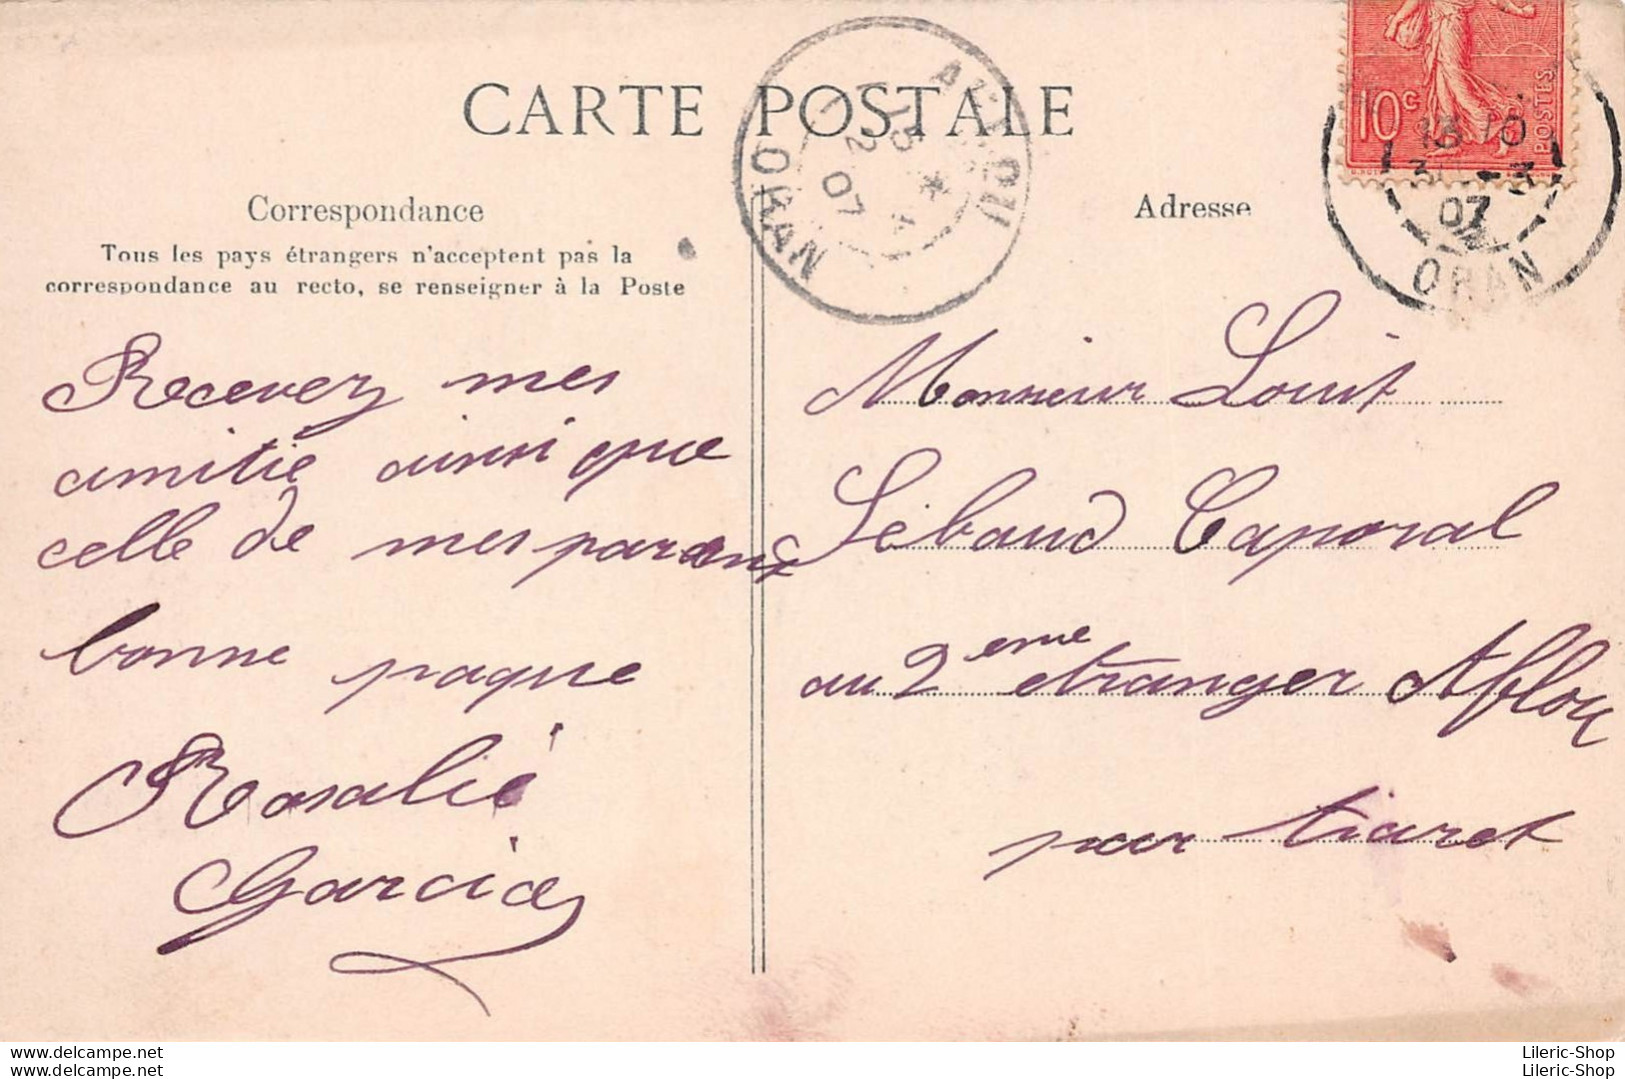 CARTE POSTALE
Correspondance
Tous les pays étrangers n'acceptent pas la
correspondance au recto, se renseigner à la Poste
Recevez mes
amitié ainsi que
celle de mes parents
bonne paque
Rosalie
Garcia
AFLOU
15 *
2 4
07
ORAN
10c
POSTES
13 10
31 -3
07
ORAN
Adresse
Monsieur Louit
Lebaud Caporal
au 2eme etranger Aflou
par tiaret
www.delcampe.net
www.delcampe.net
Lileric-Shop
Lileric-Shop